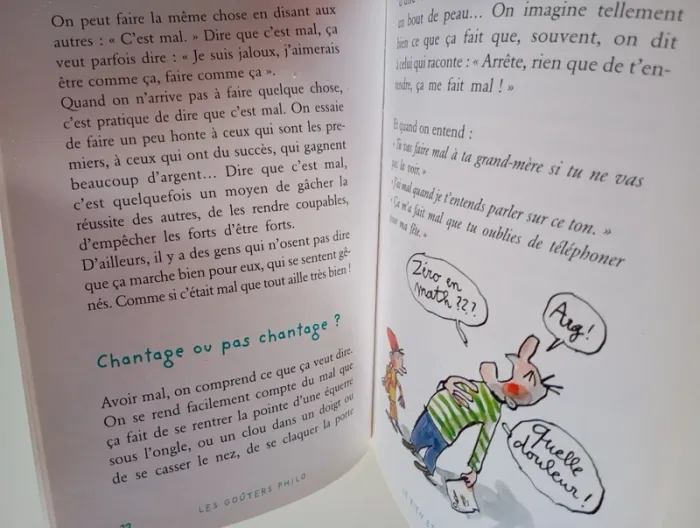 On peut faire la même chose en disant aux
autres : « C'est mal. » Dire que c'est mal, ça
veut parfois dire : « Je suis jaloux, j'aimerais
être comme ça, faire comme ça ».
Quand on n'arrive pas à faire quelque chose,
c'est pratique de dire que c'est mal. On essaie
de faire un peu honte à ceux qui sont les pre-
miers, à ceux qui ont du succès, qui gagnent
beaucoup d'argent... Dire que c'est mal,
c'est quelquefois un moyen de gâcher la
réussite des autres, de les rendre coupables,
d'empêcher les forts d'être forts.
D'ailleurs, il y a des gens qui n'osent pas dire
que ça marche bien pour eux, qui se sentent gê-
nés. Comme si c'était mal que tout aille très bien !
Chantage ou pas chantage ?
Avoir mal, on comprend ce que ça veut dire.
On se rend facilement compte du mal que
ça fait de se rentrer la pointe d'une équerre
sous l'ongle, ou un clou dans un doigt ou
de se casser le nez, de se claquer la porte
LES GOÛTERS PHILO
un bout de peau... On imagine tellement
bien ce que ça fait que, souvent, on dit
à celui qui raconte : « Arrête, rien que de t'en-
tendre, ça me fait mal ! »
Et quand on entend :
« Tu vas faire mal à ta grand-mère si tu ne vas
pas la voir. »
« J'ai mal quand je t'entends parler sur ce ton. »
« Ça m'a fait mal que tu oublies de téléphoner
pour ma fête. »
Zéro en
math???
Arg!
Quelle
douleur!